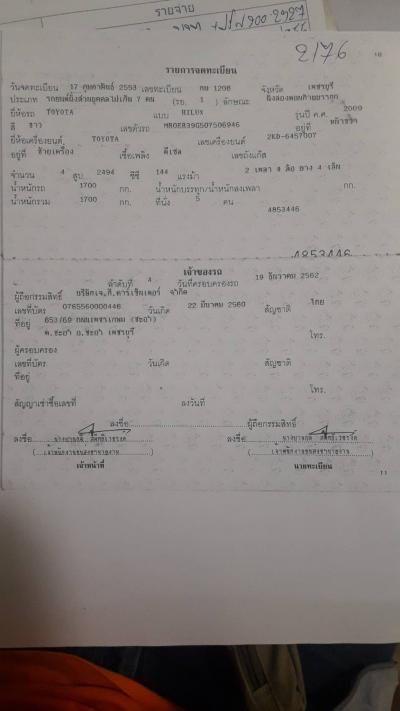 รายจ่าย
2/76
10
รายการจดทะเบียน
วันจดทะเบียน 17 กุมภาพันธ์ 2553 เลขทะเบียน กย 1208 จังหวัด เพชรบุรี
ประเภท รถยนต์นั่งส่วนบุคคลไม่เกิน 7 คน (รย. 1 ) ลักษณะ
ยี่ห้อรถ TOYOTA แบบ HILUX รุ่นปี ค.ศ. 2009
สี ขาว เลขตัวรถ MR0ER39G507506946 อยู่ที่
ยี่ห้อเครื่องยนต์ TOYOTA เลขเครื่องยนต์ 2KD-6457007
อยู่ที่ ซ้ายเครื่อง เชื้อเพลิง ดีเซล เลขถังแก๊ส
จำนวน 4 สูบ 2494 ซีซี 144 แรงม้า 2 เพลา 4 ล้อ ยาง 4 เส้น
น้ำหนักรถ 1700 กก. น้ำหนักบรรทุก/น้ำหนักลงเพลา กก.
น้ำหนักรวม 1700 กก. ที่นั่ง 5 คน
4853446
4853446
เจ้าของรถ
ลำดับที่ 4 วันที่ครอบครองรถ 19 ธันวาคม 2562
ผู้ถือกรรมสิทธิ์ บริษัทเจ.กี.คาร์เซ็นเตอร์ จำกัด
เลขที่บัตร 0765560000446 วันเกิด 22 มีนาคม 2560 สัญชาติ ไทย
ที่อยู่ 653/60 ถนนเพชรเกษม (ชะอำ)
ต.ชะอำ อ.ชะอำ เพชรบุรี โทร.
ผู้ครอบครอง
เลขที่บัตร วันเกิด สัญชาติ
ที่อยู่
โทร.
สัญญาเช่าซื้อเลขที่ ลงวันที่
ลงชื่อ ผู้ถือกรรมสิทธิ์
ลงชื่อ ลงชื่อ
เจ้าหน้าที่ นายทะเบียน
11